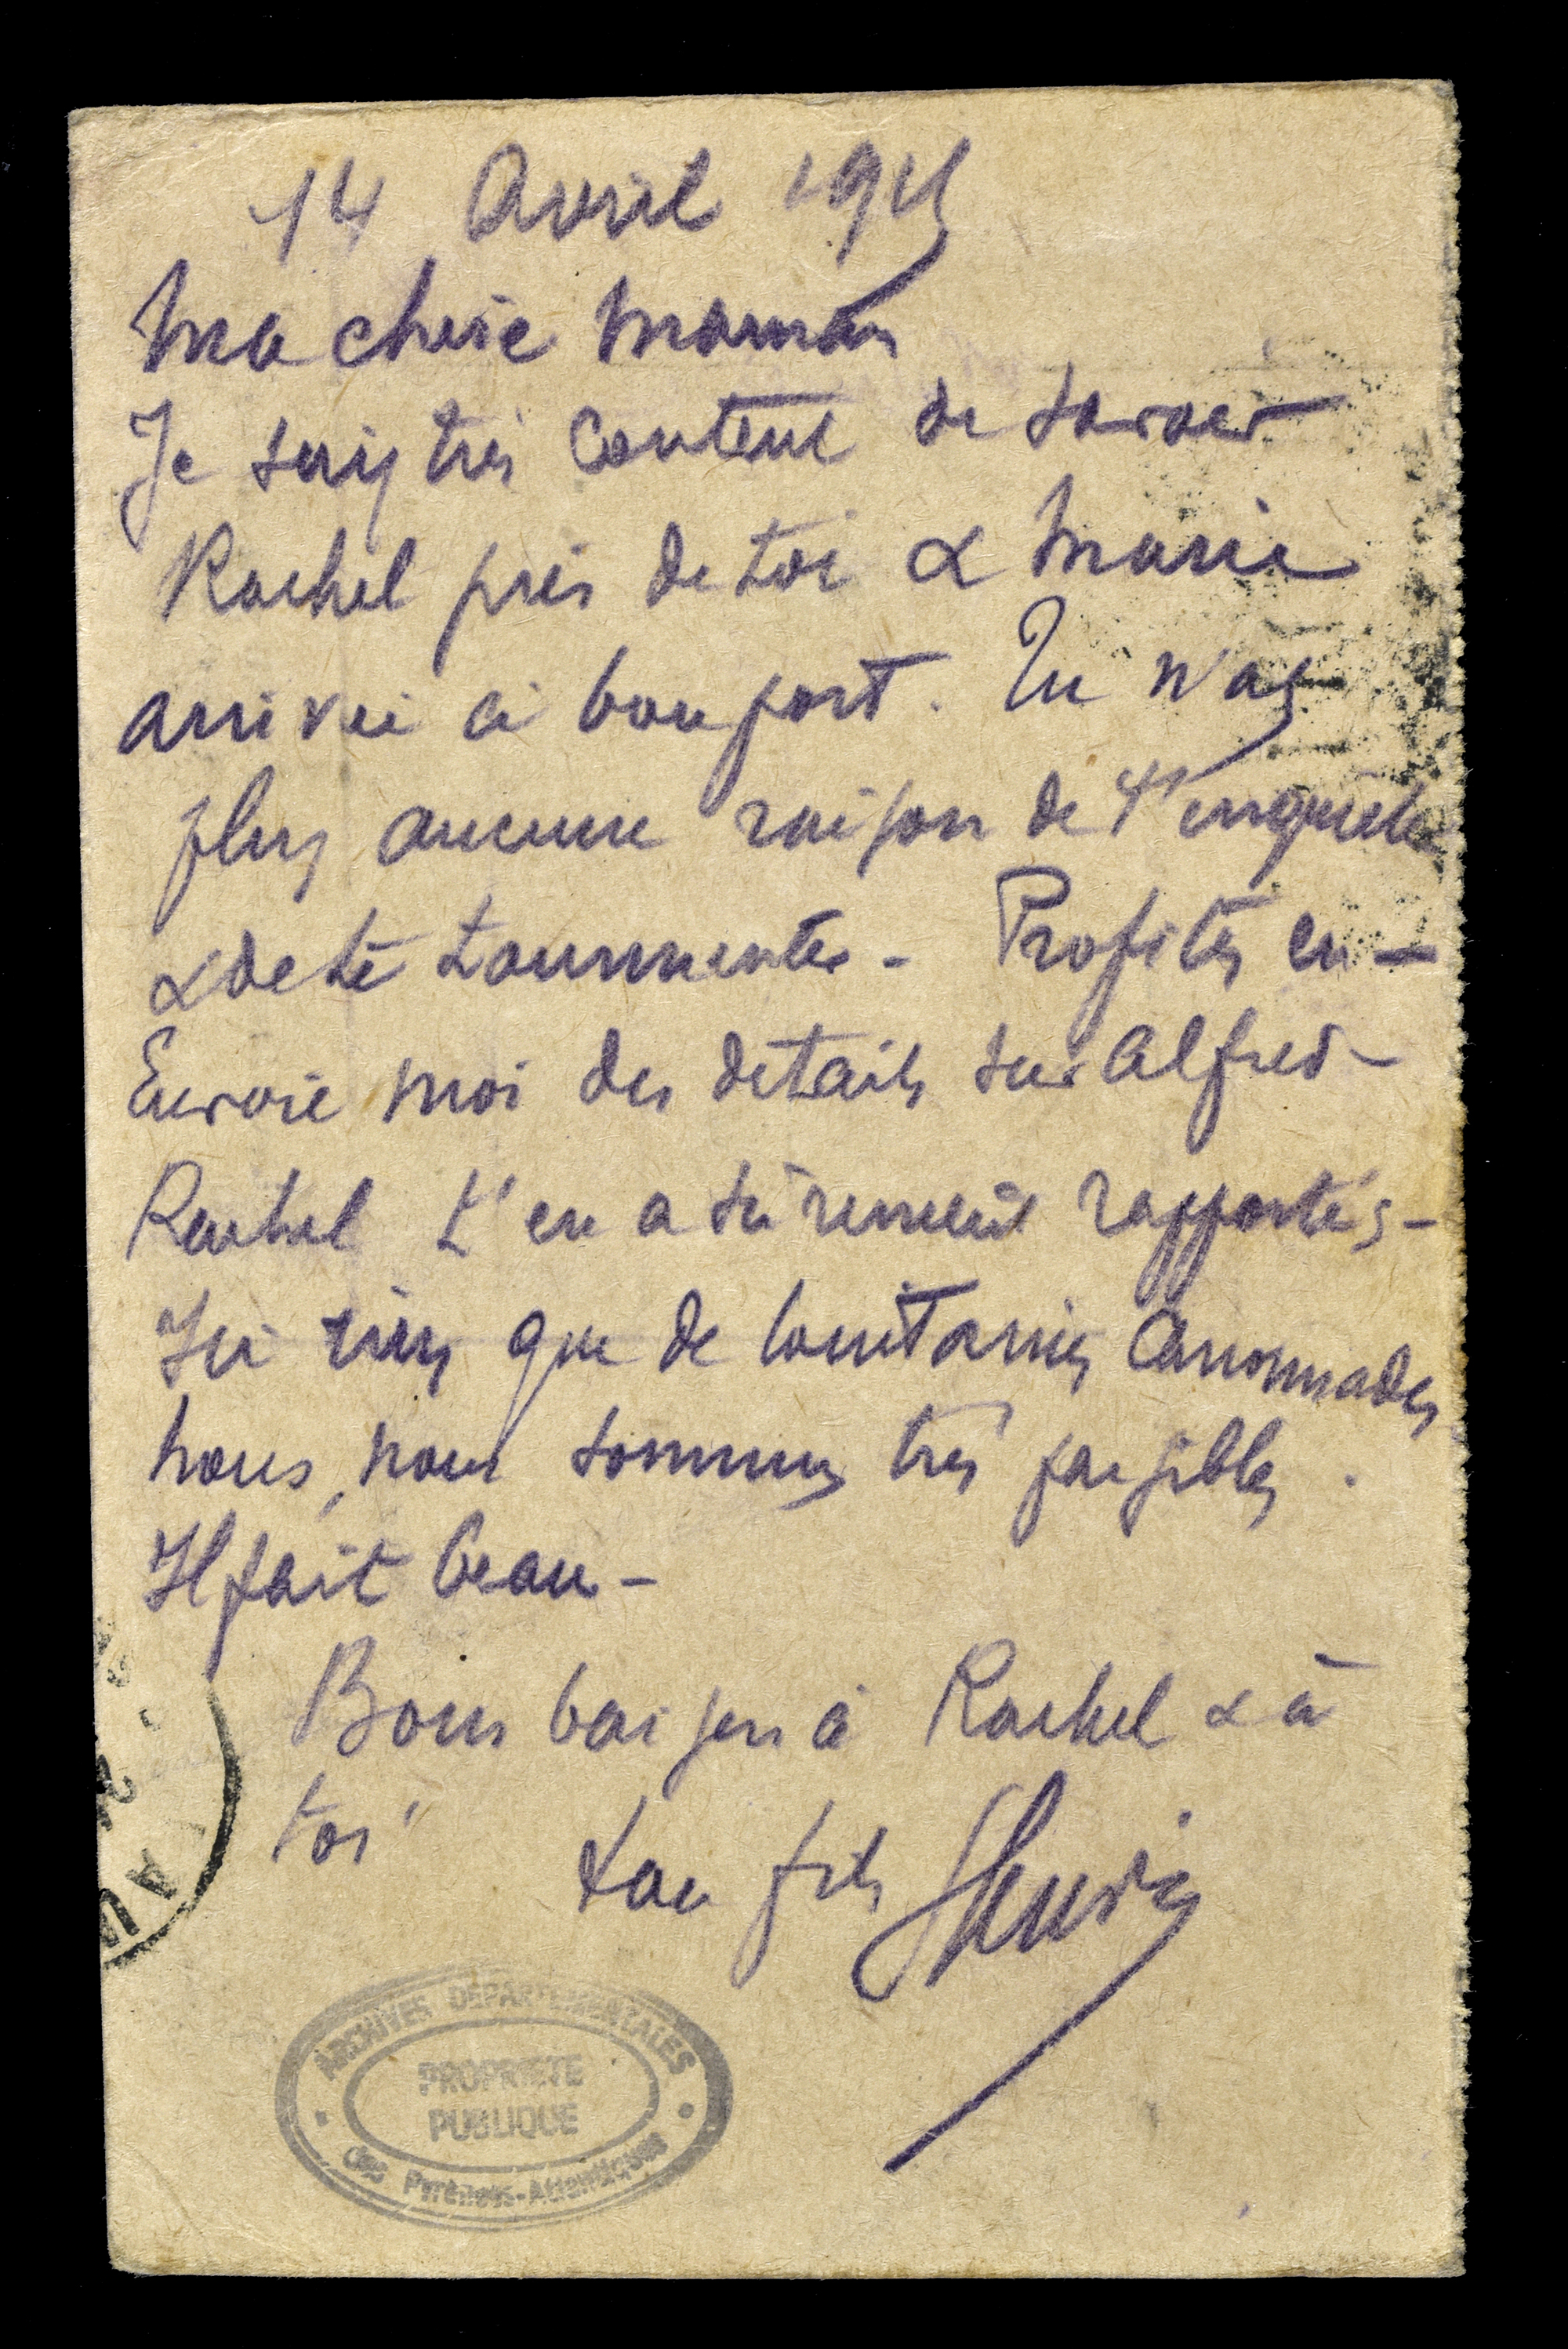 14 Avril 1915
Ma chère Maman
Je suis très content de savoir
Rachel près de toi & Marie
arrivée à bon port. Tu n'as
plus aucune raison de t'inquiéter
& de te tourmenter - Profites en -
Envoie moi des détails sur Alfred -
Rachel t'en a sûrement rapportés -
Ici rien que de lointaines canonnades
nous, nous sommes très paisibles.
Il fait beau -
Bons baisers à Rachel & à
toi
ton fils
ARCHIVES DEPARTEMENTALES
PROPRIETE
PUBLIQUE
des Pyrénées-Atlantiques